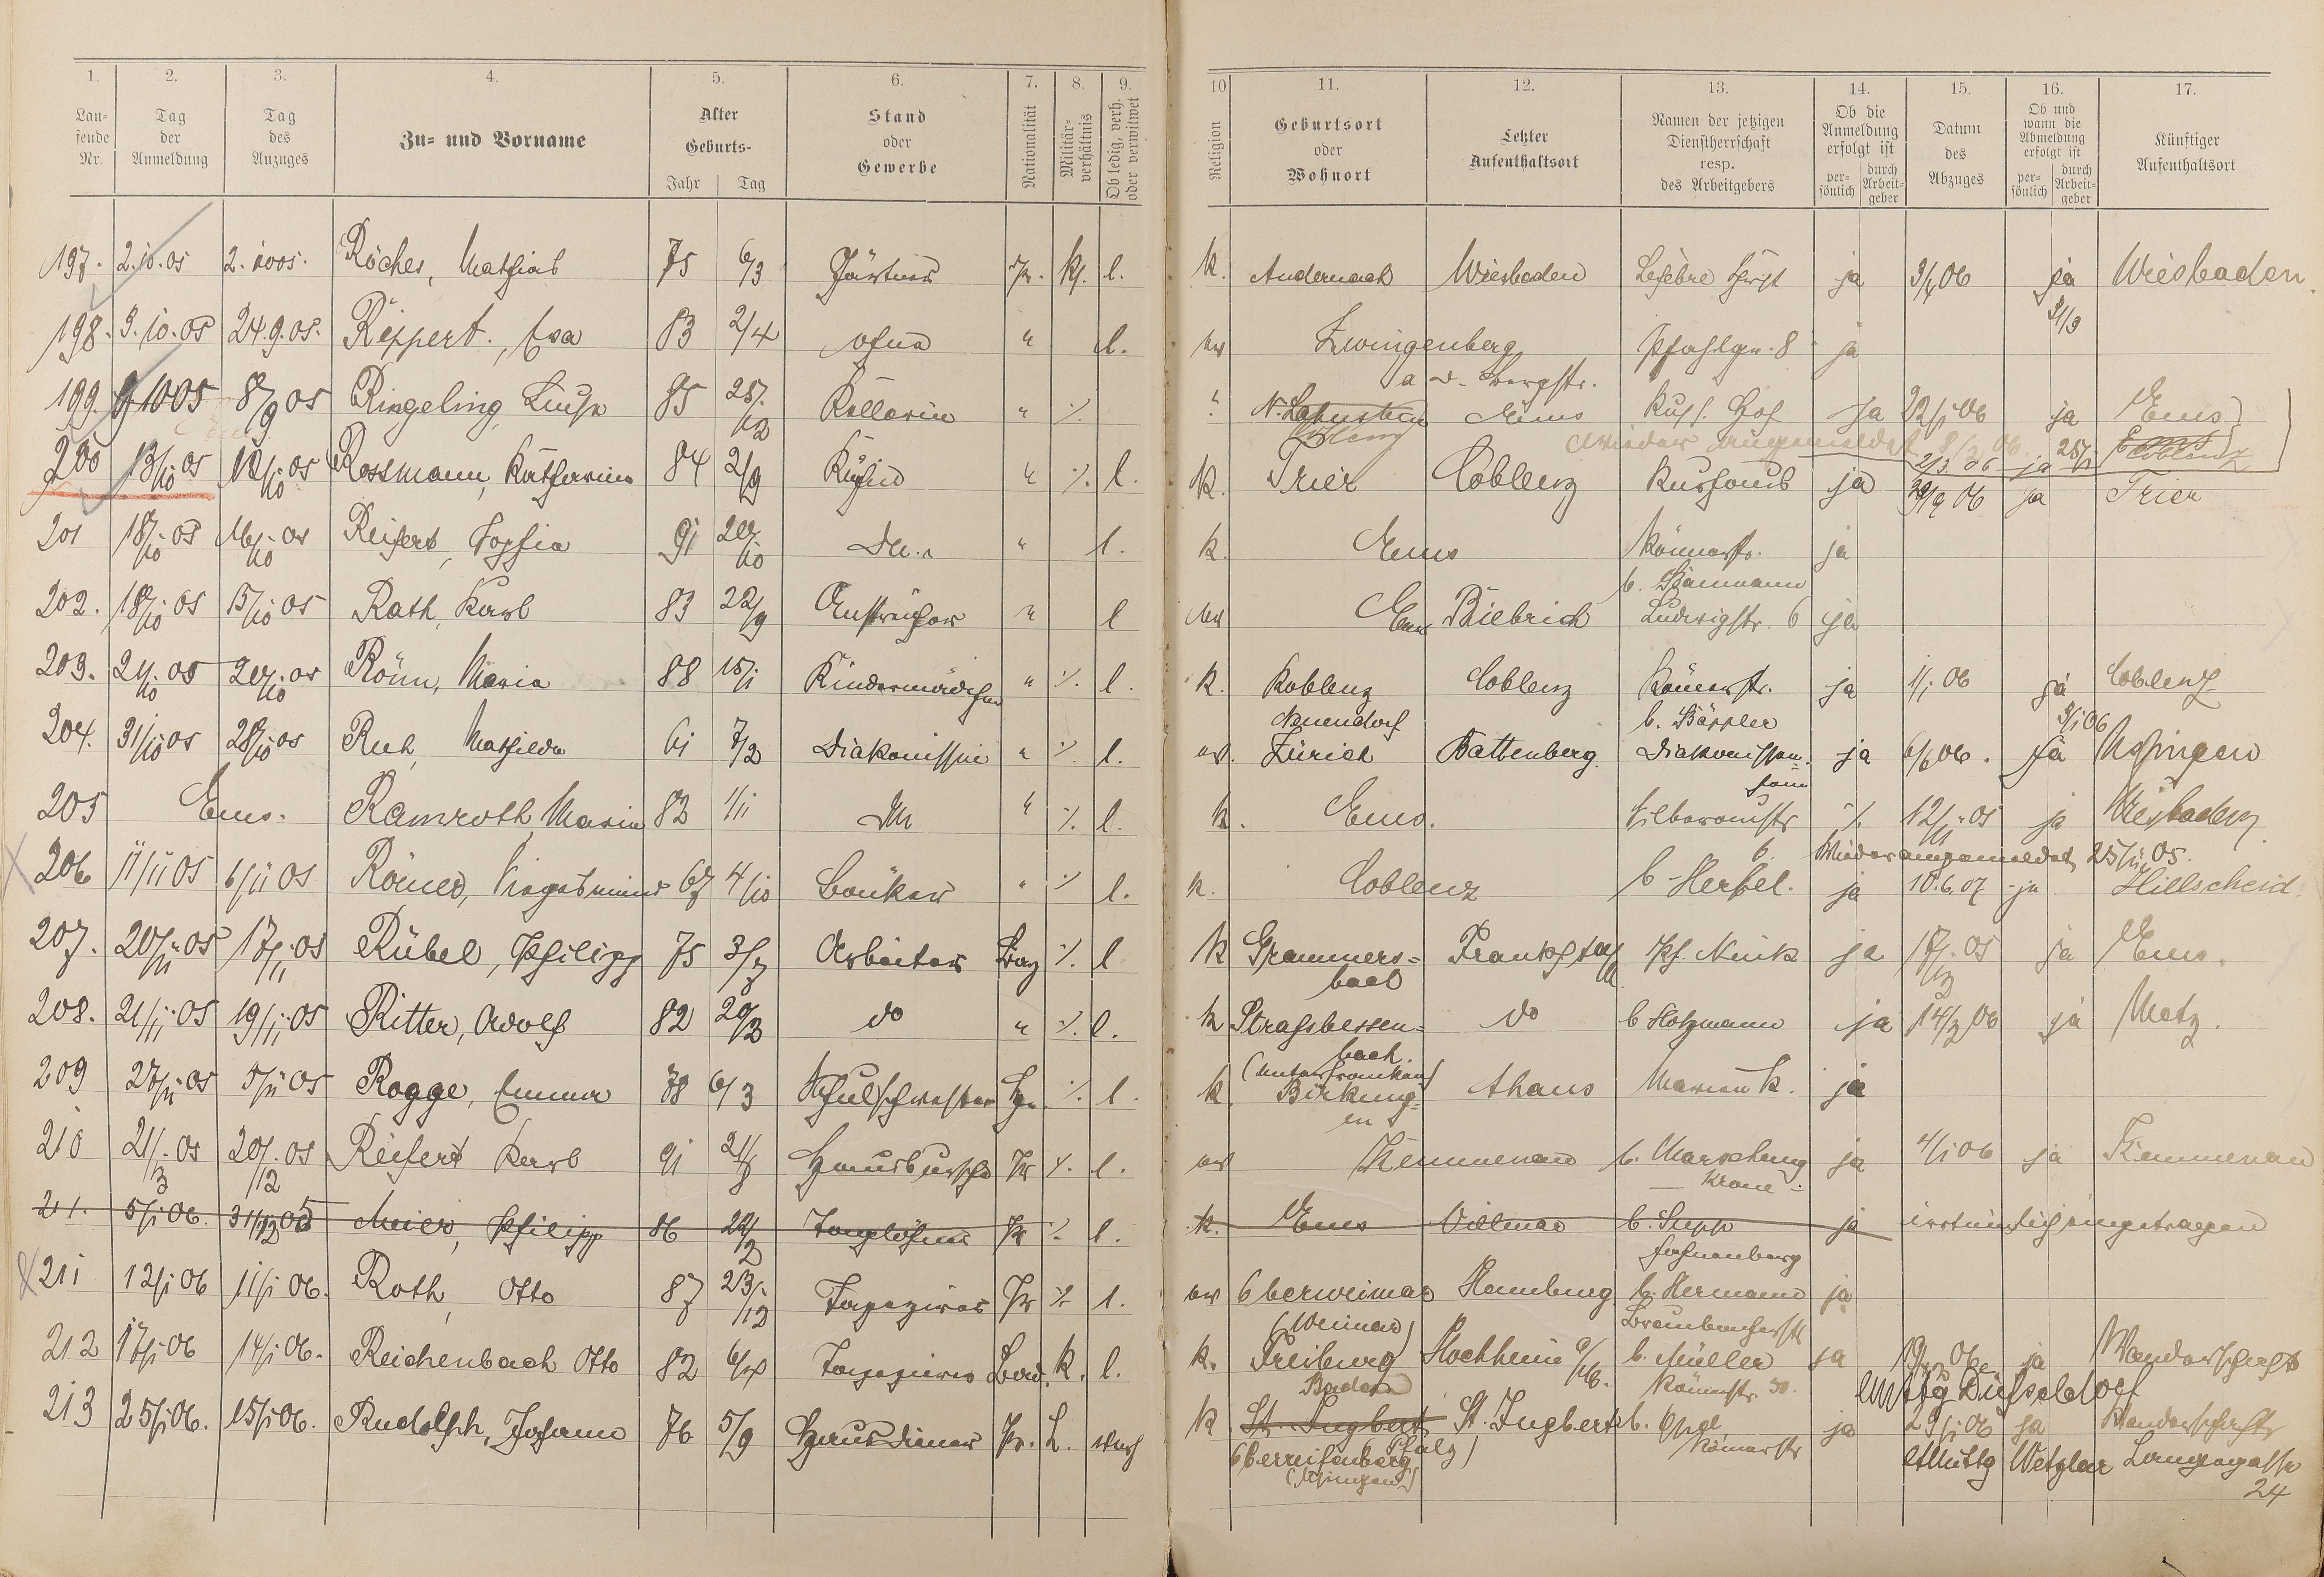 1. 2. 3. 4. 5. 6. 7. 8. 9. 10 11. 12. 13. 14. 15. 16. 17.
Laufende Nr. Tag der Anmeldung Tag des Anzuges Zu- und Vorname Alter Geburts- Jahr Tag Stand oder Gewerbe Nationalität Militärverhältnis Ob ledig, verh. oder verwitwet Religion Geburtsort oder Wohnort Letzter Aufenthaltsort Namen der jetzigen Dienstherrschaft resp. des Arbeitgebers Ob die Anmeldung erfolgt ist persönlich durch Arbeitgeber Datum des Abzuges Ob und wann die Abmeldung erfolgt ist persönlich durch Arbeitgeber Künftiger Aufenthaltsort
197. 2.10.05 2.1005. Röcher, Mathias 75 6/3 Gärtner Pr. l. k. Andernach Wiesbaden ja 3/4 06 ja Wiesbaden.
31/3
198. 3.10.05 24.9.05. Rippert, Eva 83 2/4 ohne " l. ev Zwingenberg Pfahlgr. 8 ja
a. d. Bergstr.
199. 9/10 05 8/9 05 Ringeling Luise 85 25/12 Kellerin " ./. " N. Lahnstein Ems Russ. Hof ja 22/1 06 ja Ems
Coblenz Wieder angemeldet 8/2 06. 2/3. 06 ja
200 13/10 05 12/10 05 Rossmann, Katharina 84 2/9 Köchin " ./. l. k. Trier Coblenz Kurhaus ja 29/9 06 ja Trier
201 18/10 05 16/10 05 Reifert, Sophia 91 20/10 " l. k. Ems Römerstr. ja
b. Baumann
202. 18/10 05 15/10 05 Rath, Karl 83 22/9 Anstreicher " l ev Ems Biebrich Ludwigstr. 6 ja
203. 21/10 05 20/10 05 Rönn, Maria 88 15/1 Kindermädchen " ./. l. k. Koblenz Coblenz Römerstr. ja 1/1 06 ja Coblenz
Neuendorf b. Bäppler 3/1 06
204. 31/10 05 28/10 05 Ruh, Mathilde 61 7/2 Diakonissin " ./. l. ev. Zürich Battenberg. Diakonissen- ja 6/6 06. ja Usingen
heim
205 Ems. Ramroth, Maria 82 1/11 " ./. l. k. Ems. Silberaustr ./. 12/11 05 ja Wiesbaden
6. Wieder angemeldet 25/11 05.
206 11/11 05 6/11 05 Römer, 67 4/10 " ./. l. k. Coblenz b. Herbel. ja 10.6.07 ja Hillscheid.
207. 20/11 05 17/11 05 Rübel, Philipp 75 3/7 Arbeiter Bay ./. l k Grammers- Frankf a/M Ph. Nink ja 17/12 05 ja Ems.
bach
208. 21/11 05 19/11 05 Ritter, Adolf 82 20/3 do " ./. l. k Strassbessen- do b Holzmann ja 14/3 06 ja Metz.
bach.
(Unterfranken)
209 27/11 05 5/11 05 Rogge, Emma 78 6/3 Schulschwester ./. l. k. Birkung- Ahaus Marienk. ja
en
210 21/12 05 20/12 05 Reifert Karl 91 21/8 Hausbursche Pr ./. l. ev Kemmenau b. Marschang ja 4/1 06 ja Kemmenau
- Krone -
21. 5/1 06. 31/12 05 Meier, Philipp 86 22/2 Taglöhner Pr ./. l. k. Ems Villmar b. Supp ja irrtümlich eingetragen
Hahnenberg
211 12/1 06 11/1 06. Roth, Otto 87 23/12 Tapezierer Pr ./. l. ev Oberweimar Hamburg b. Hermann ja
(Weimar) Braubacherstr
212 17/1 06 14/1 06. Reichenbach Otto 82 Tapezierer Bad. k. l. k. Freiburg Hochheim b. Müller ja ja Wanderschaft
Baden Römerstr. 30. Düsseldorf
213 25/1 06. 15/1 06. Rudolph, Johann 76 5/9 Hausdiener Pr. L. k St. Ingbert St. Ingbert b. Opel ja 29/1 06 ja Wanderschaft
Oberreifenberg Pfalz) Römerstr Wetzlar Langegasse
(Usingen) 24